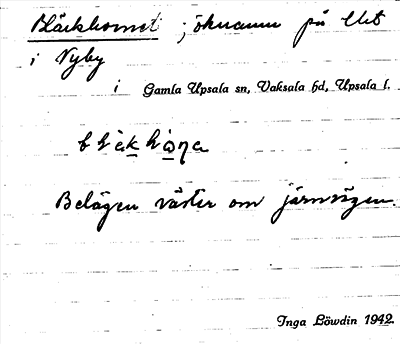 Bläckhornet ; öknamn på
i Nyby
i Gamla Upsala sn, Vaksala hd, Upsala l.
Belägen väster om järnvägen.
Inga Löwdin 1942.